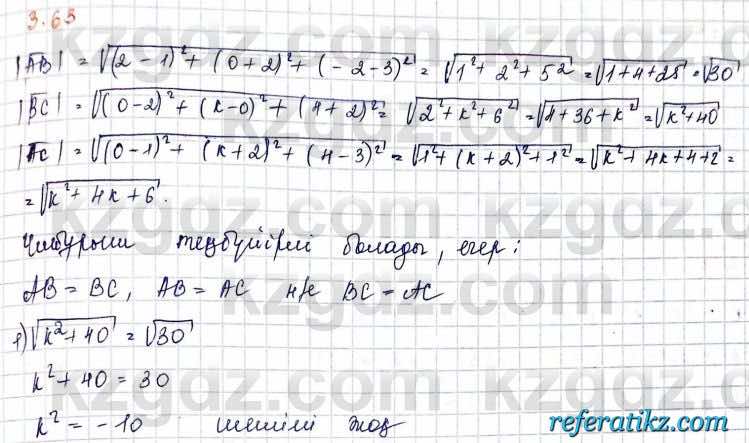 3.63
|AB| = √((2-1)² + (0+2)² + (-2-3)²) = √(1² + 2² + 5²) = √(1+4+25) = √30
|BC| = √((0-2)² + (k-0)² + (4+2)²) = √(2² + k² + 6²) = √(4+36+k²) = √(k²+40)
|AC| = √((0-1)² + (k+2)² + (4-3)²) = √(1² + (k+2)² + 1²) = √(k² + 4k+4+2) =
= √(k² + 4k + 6).
Үшбұрыш теңбүйірлі болады, егер:
AB = BC, AB = AC н/е BC = AC
1) √(k² + 40) = √30
k² + 40 = 30
k² = -10 шешімі жоқ
kzgdz.com
referatikz.com